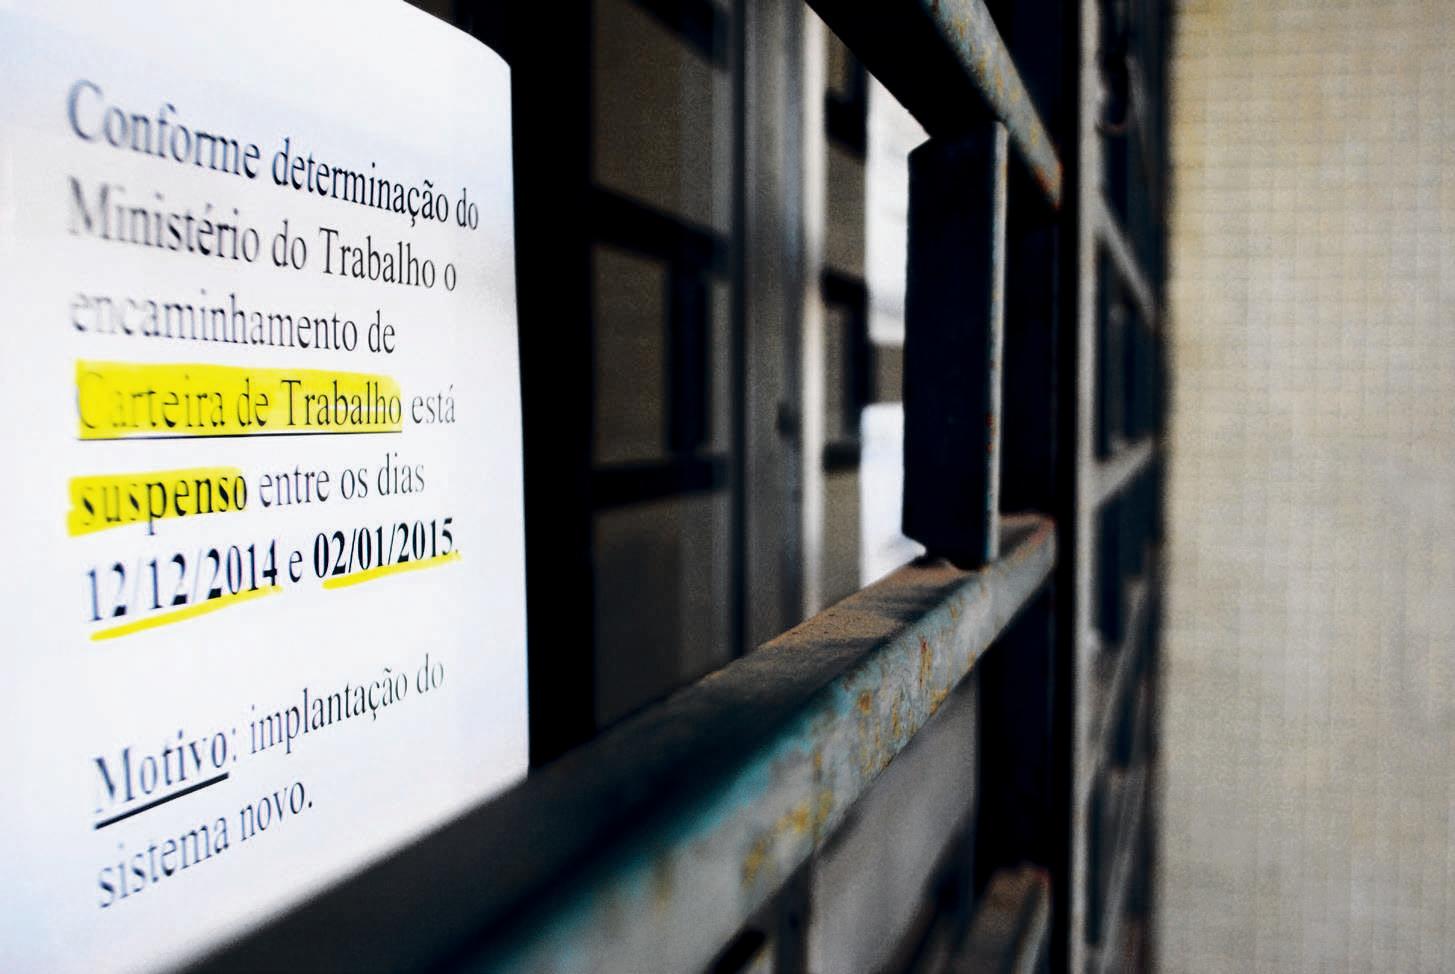 Conforme determinação do
Ministério do Trabalho o
encaminhamento de
Carteira de Trabalho está
suspenso entre os dias
12/12/2014 e 02/01/2015.
Motivo: implantação do
sistema novo.